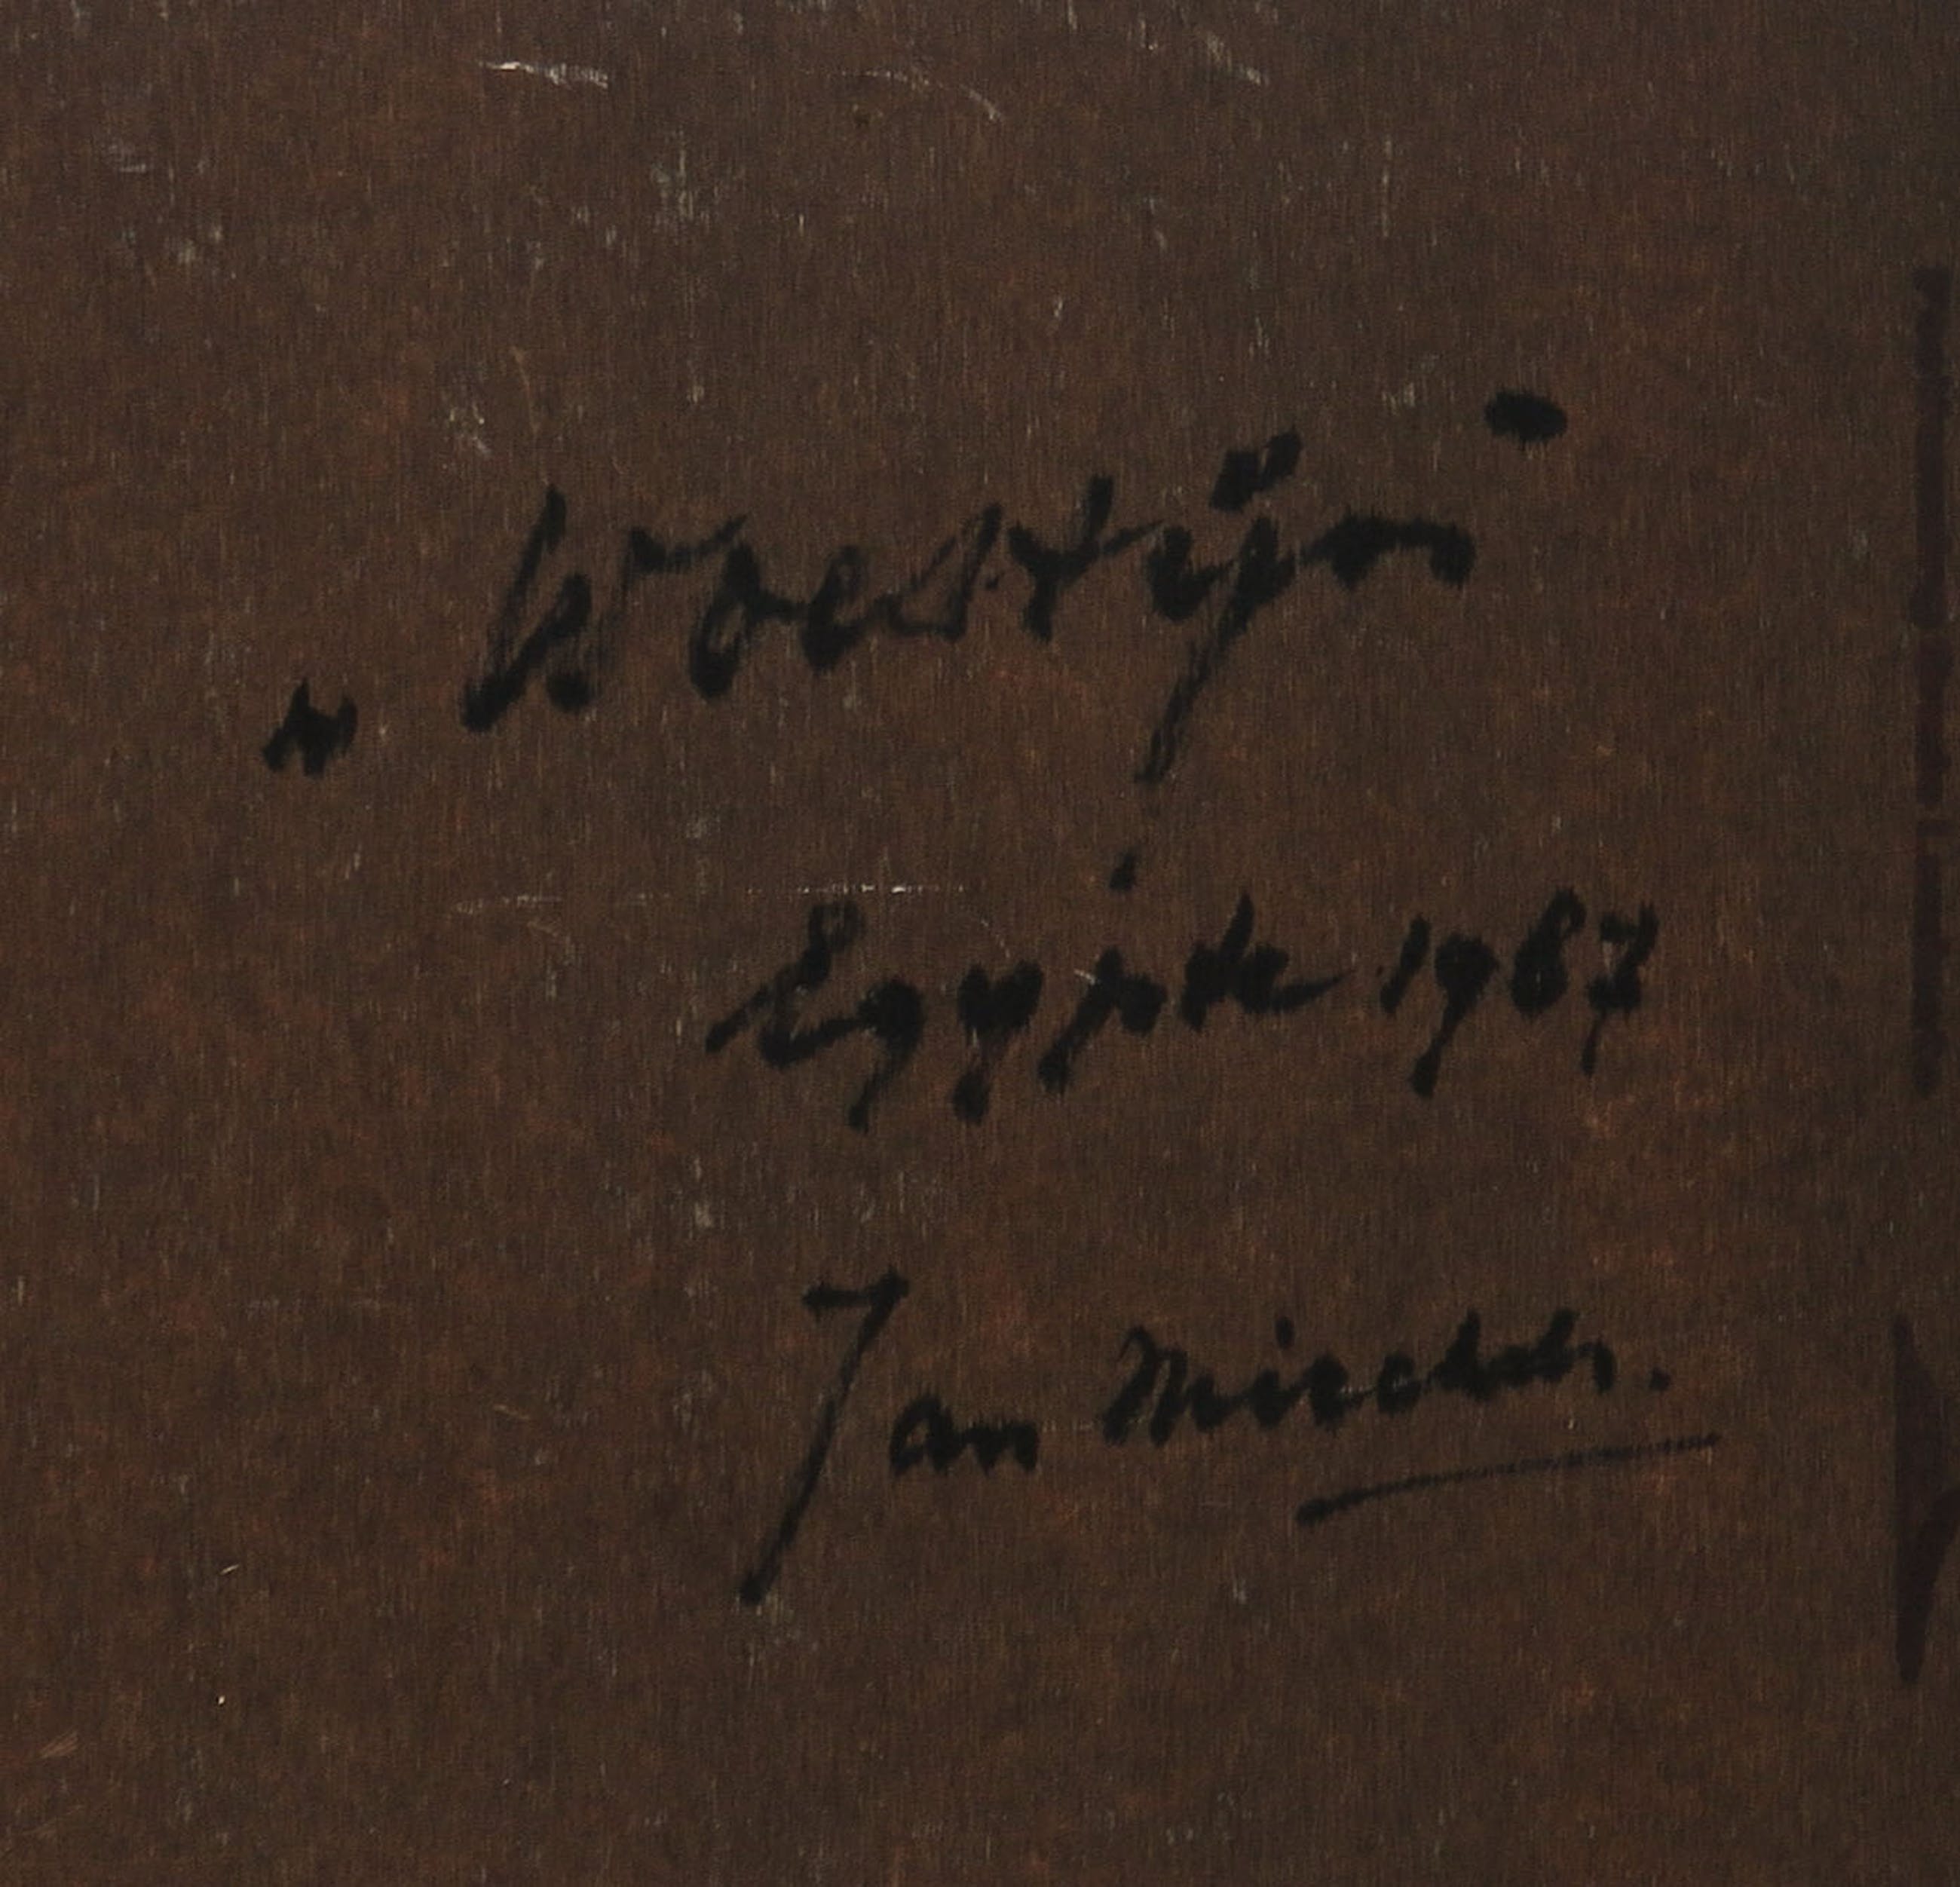 „Woestijn"
Egypte 1987
Jan